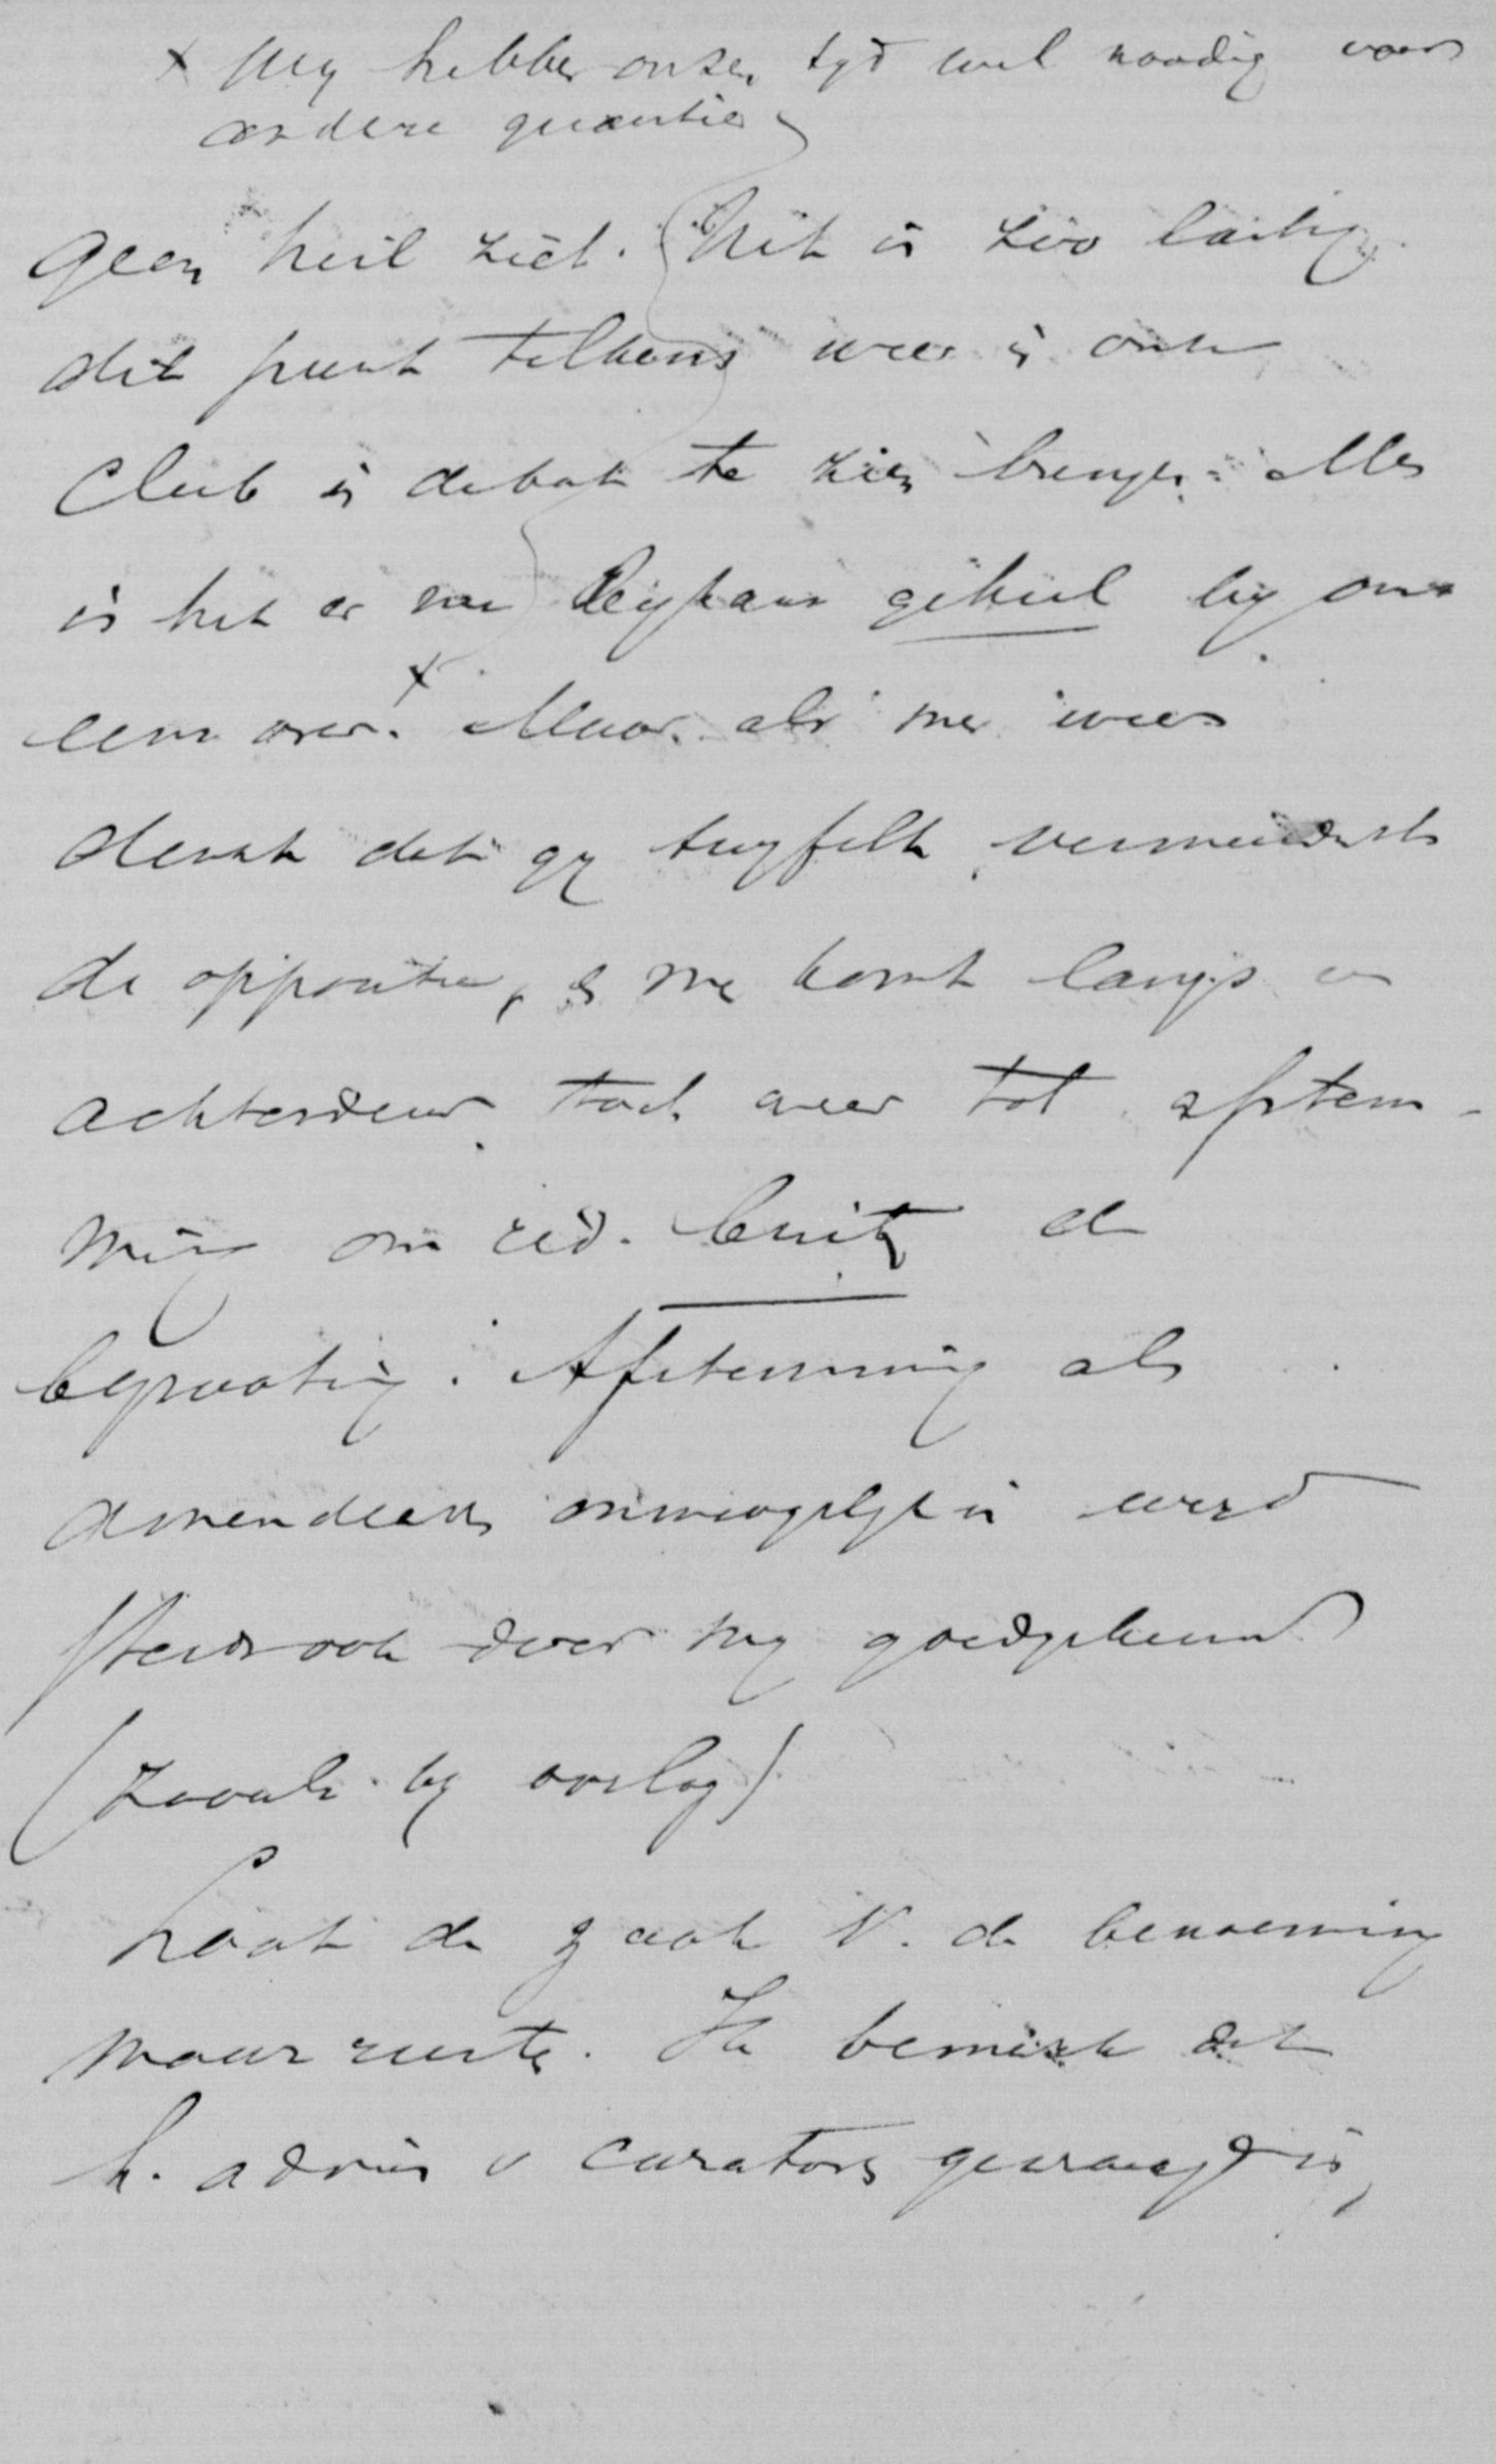 x Wy hebben onzen tyd wel noodig voor
andere quaesties
geen heil ziet. Het is zoo lastig
dit punt telkens weer in onze
Club in debat te zien brengen. Men
is het er nu blykbaar geheel by ons
eens over. x Maar als men weer
denkt dat gy twyfelt, vermindert
de oppositie, en men komt langs een
achterdeur toch weer tot afstem-
ming om red. buiten de
begrooting. Afstemming als
amendeeren onmogelyk is werd
steeds ook door my goedgekeurd
(zooals by oorlog)
Laat de zaak v. de benoeming
maar rusten. Ik bemerk dat
h. advies v curatoren gevraagd is,